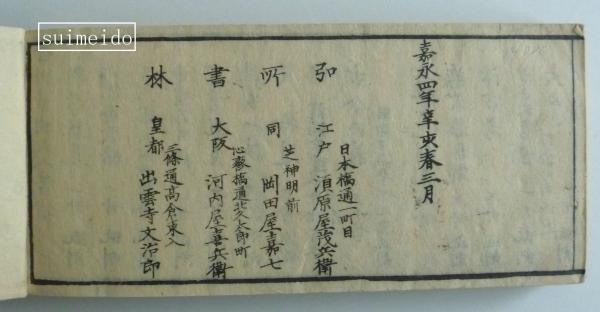 suimeido
嘉永四年辛亥春三月
日本橋通一町目
弘 江戸 須原屋茂兵衛
芝神明前
所 同 岡田屋嘉七
心斎橋通北久太郎町
書 大阪 河内屋喜兵衛
三條通高倉東入
林 皇都 出雲寺文治郎